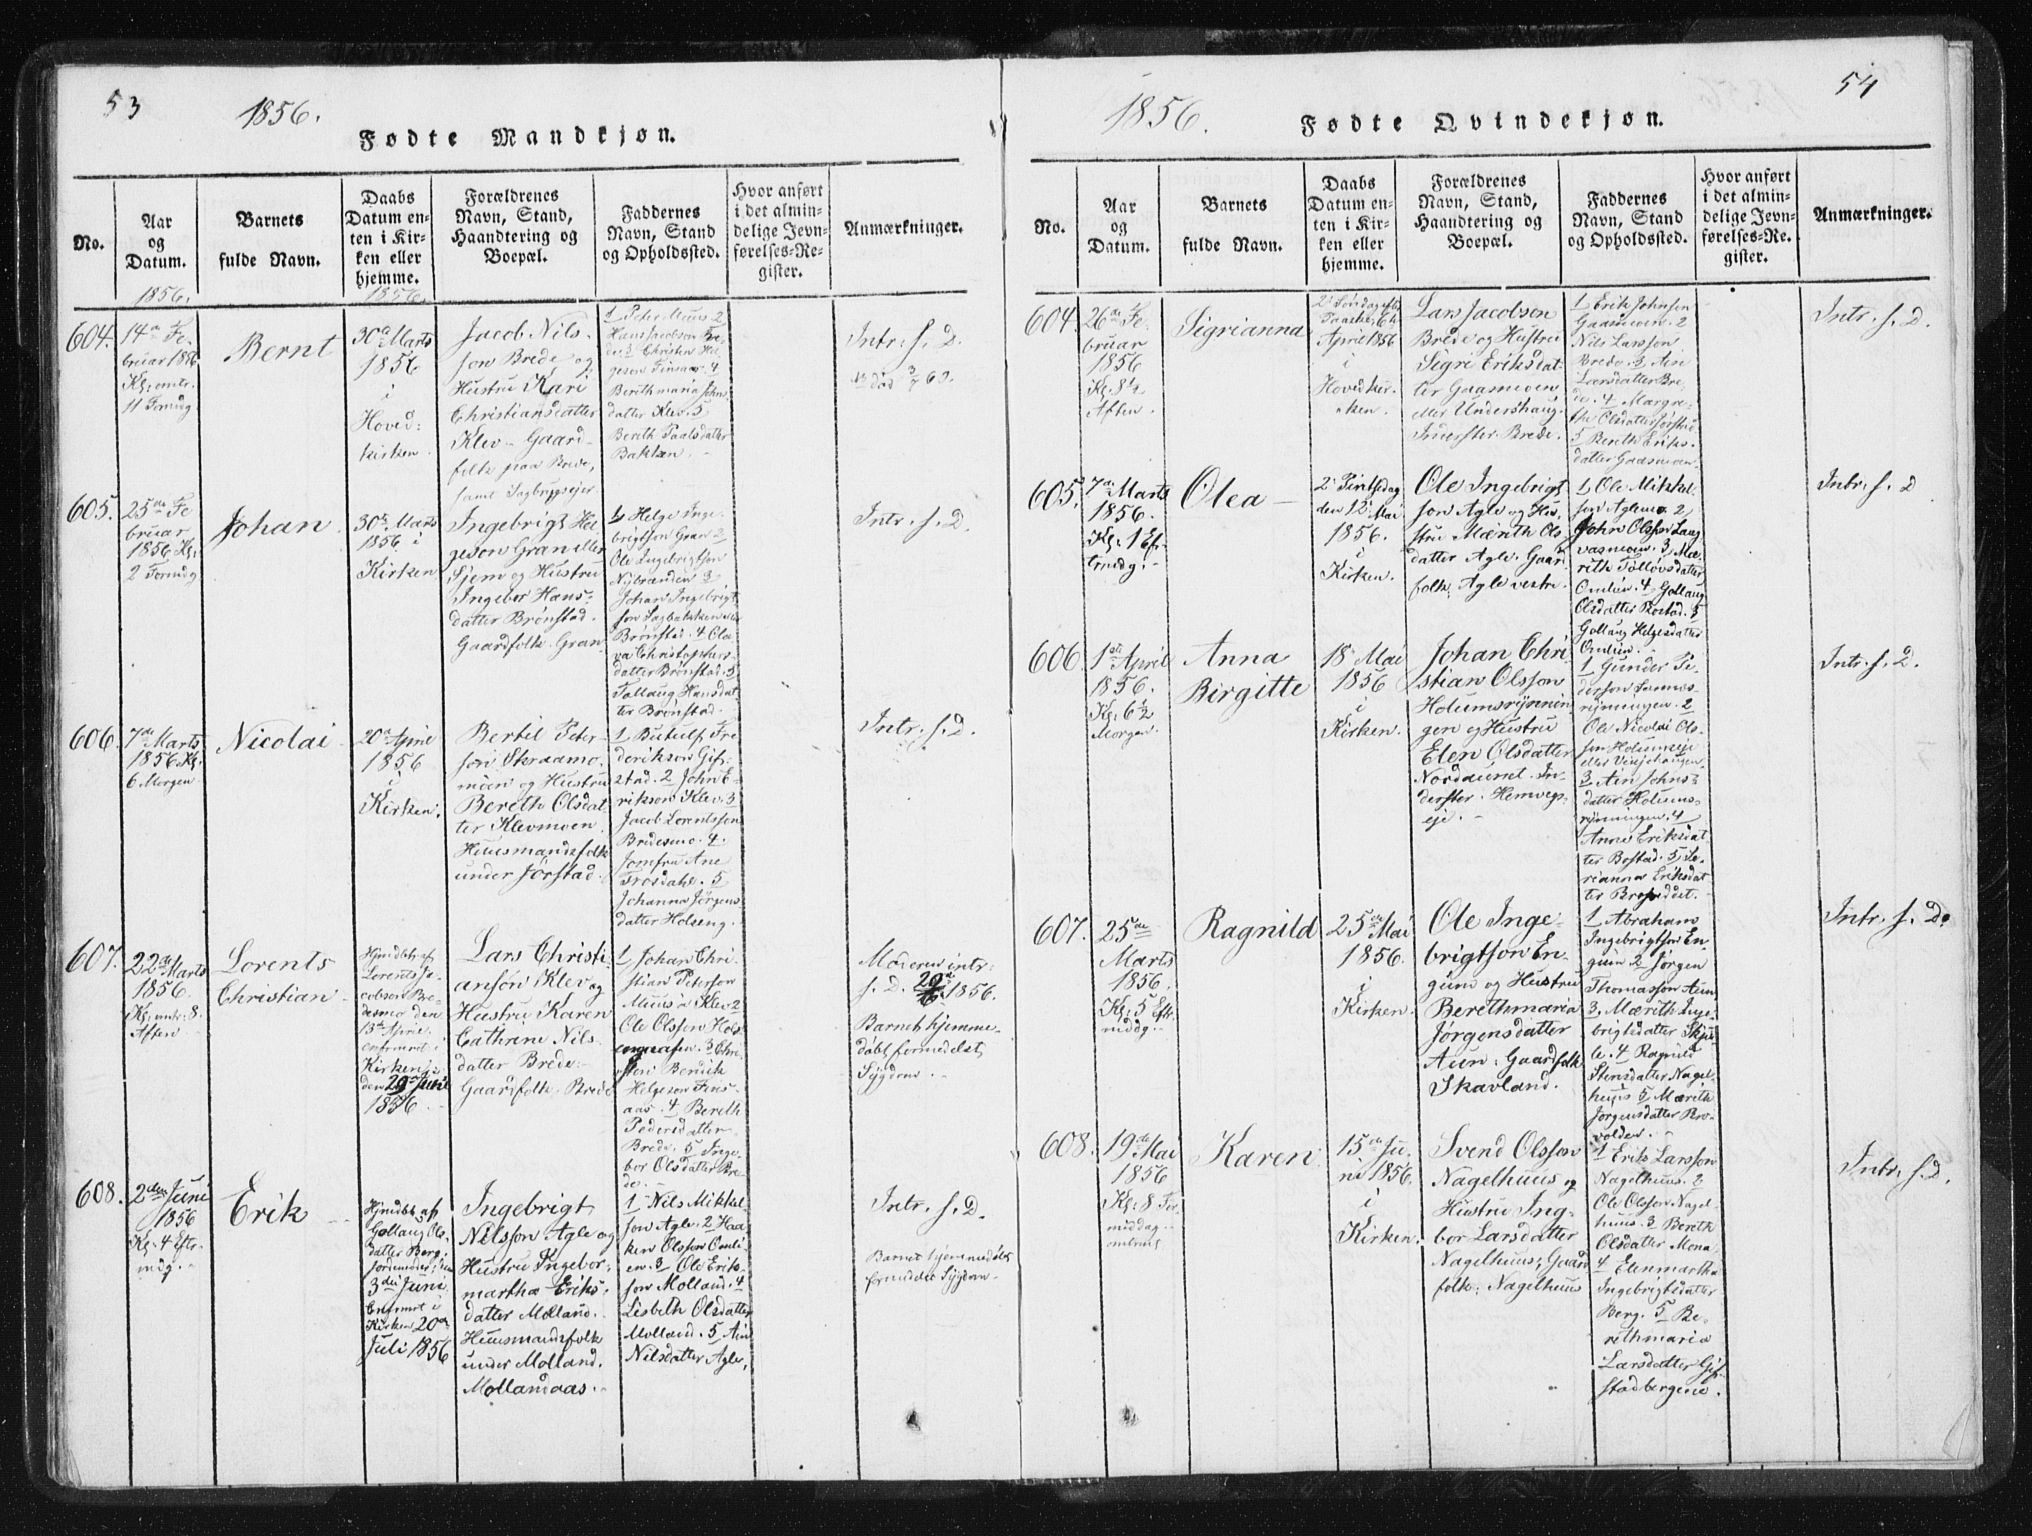 53
1856.
Fødte Mandkjøn.
No.
Aar
og
Datum.
Barnets
fulde Navn.
Daabs
Datum en-
ten i Kir-
ken eller
hjemme.
Forældrenes
Navn, Stand,
Haandtering og
Boepæl.
Faddernes
Navn, Stand
og Opholdssted.
Hvor anført
i det almin-
delige Jevn-
førelses-Re-
gister.
Anmærkninger.
1856.
1856.
604.
14de Fe-
bruar 1856
Kl: omtr.
11 Formdg.
Bernt
30te Marts
1856
i
Hoved-
kirken.
Jacob Nils-
søn Brede og
Hustru Kari
Christiansdatter
Klev - Gaard-
folk paa Brede,
samt Sagbrugseier
1 Peter Muus 2
Hans Jacobsen Bre-
de 3 Christen Hel-
geson Finsaas. 4
Berithmaria Johns-
datter Klev. 5
Berith Paalsdatter
Bakken.
Intr. s. D.
605.
25de Fe-
bruar
1856 Kl:
2 Formdg
Johan
30te Marts
1856 i
Kirken
Ingebrigt Hel-
geson Gran eller
Sjem og Hustru
Ingebor Hans-
datter Brønstad.
Gaardfolk. Gran
1 Helge Inge-
brigtson Gran 2
Ole Ingebrigtson
Nybranden 3
Johan Ingebrigt-
son Sagbakken eller
Brønstad. 4 Ola-
va Christophers-
datter Brønstad. 5
Tollaug Hansdat-
ter Brønstad.
Intr. s. D.
606.
7de Marts
1856 Kl:
6 Morgen
Nicolai
20de April
1856
i
Kirken.
Bertil Peter-
son Skraamo-
moen og Hustru
Bereth Olsdat-
ter Klevmoen
Huusmandsfolk
under Jørstad.
1 Butulf Fre-
derikson Gif-
stad. 2 John E-
rikson Klev. 3
Jacob Lorentsson
Bredesmo. 4.
Jomfru Ane
Trosdahl. 5
Johanna Jørgens-
datter Holseng.
Intr. s. D.
607.
22de Marts
1856.
Kl: omtr. 8.
Aften
Lorents
Christian
Hjmdbt af
Lorents Ja-
cobson Bre-
desmo den
13de April
confirmeret i
Kirken i
den 29de Juni
1856.
Lars Christi-
ansøn Klev og
Hustru Karen
Cathrine Nils-
datter Brede.
Gaardfolk. Brede
1 Johan Chri-
stian Peterson
Muus i Klev 2
Ole Olsson Hols-
3 Chri-
Benrik
Helgeson Fins-
aas. 4 Bereth
Pedersdatter
Brede. 5 Inge-
bor Olsdatter Bre-
de.
Moderen intr.
s. D. 29/6 1856.
Barnet hjemme-
døbt formedelst
Sygdom.
608.
2den Juni
1856
Kl: 4 Eftr-
mdg.
Erik
Hjmdbt af
Gollaug Ols-
datter Berg,
Jordemoder, den
3die Juni
Confirmeret i
Kirken 20de
Juli 1856
Ingebrigt
Nilsson Agle og
Hustru Ingebor-
martha Eriks-
datter Molland.
Huusmandsfolk
under Molland.
Mollandaas.
1 Nils Mikkel-
son Agle. 2 Haa-
ken Olsson Omli-
en. 3 Ole Erik-
son Molland. 4
Lisbeth Olsdatter
Molland. 5 Ane
Nilsdatter Agle.
Intr. s. D.
Barnet hjemmedøbt
formedelst Sygdom.
54
1856.
Fødte Qvindekjøn.
No.
Aar
og
Datum.
Barnets
fulde Navn.
Daabs
Datum en-
ten i Kir-
ken eller
hjemme.
Forældrenes
Navn, Stand,
Haandtering og
Boepæl.
Faddernes
Navn, Stand
og Opholdssted.
Hvor anført
i det almin-
delige Jevn-
førelses-Re-
gister.
Anmærkninger.
604.
26de Fe-
bruar
1856
Kl: 8 1/2
Aften.
Sigrianna
2 Søndag eftr
Paaske, 6te
April 1856
i
Hovedkir-
ken.
Lars Jacobsen
Brede og Hustru
Sigri Eriksdat-
ter Gaasmoen
eller Undershaug.
Inderster. Brede.
1 Erik Johnsen
Gaasmoen. 2
Nils Larsson
Brede. 3 Ane
Larsdatter Bre-
de. 4 Margre-
the Olsdatter Jørstad
5 Bereth Eriks-
datter Gaasmoen.
Intr. s. D.
605.
7de Marts
1856.
Kl: 1 Ef-
trmdg.
Olea
2 Pintsedag
den 12 Mai
1856.
i
Kirken.
Ole Ingebrigt-
son Agle og Hu-
stru Mærith Ols-
datter Agle. Gaard-
folk; Agle vestre.
1 Ole Mikkel-
son Aglemo. 2
John Olsson Lang-
vasmoen. 3 Mæ-
rith Tollovsdatter
Omlien. 4 Gollaug
Olsdatter Rostad. 5
Gollaug Helgesdatter
Omlien.
Intr. s. D
606.
1ste April
1856.
Kl: 6 1/2
Morgen.
Anna
Birgitte
18 Mai
1856
i
Kirken.
Johan Chri-
stian Olsson
Holumsrynnin-
gen og Hustru
Elen Olsdatter
Nordaunet. In-
derster. Hemveg-
eje.
1 Gunder Pe-
derson Sannes-
rynningen. 2
Ole Nicolai Ols-
son Holumseje
eller Vexjehaugen.
3 Ane Johns-
datter Holums-
rynningen. 4
Anne Eriksdat-
ter Bostad. 5 Se-
rianna Eriksdat-
ter
Intr. s. D.
607.
25de
Marts
1856.
Kl: 5 Eft-
middg.
Ragnild
25de Mai
1856.
i
Kirken.
Ole Inge-
brigtson En-
gum og Hustru
Berethmaria
Jørgensdatter
Aun: Gaardfolk
Skavland.
1 Abraham
Ingebrigtson En-
gum 2 Jørgen
Thomasson Aun
3 Mærith Inge-
brigtsdatter Skju-
le. 4 Ragnild
Stensdatter Nagel-
huus 5 Mærith
Jørgensdatter Bro-
volden.
Intr. s. D.
608.
19de Mai
1856
Kl: 8 For-
middag
omtrent
Karen
15de Ju-
ni 1856.
i
Kirken.
Svend Olsson
Nagelhuus og
Hustru Ing-
bor Larsdatter
Nagelhuus; Gaard-
folk: Nagelhuus
1 Erik Larsson
Nagelhuus. 2
Ole Olsson Nagel-
huus. 3 Bereth
Olsdatter Mona
4 Elenmartha
Ingebrigtsdatter
Berg. 5 Be-
rethmaria
Larsdatter Gif-
stadbergene.
Intr. s. D.